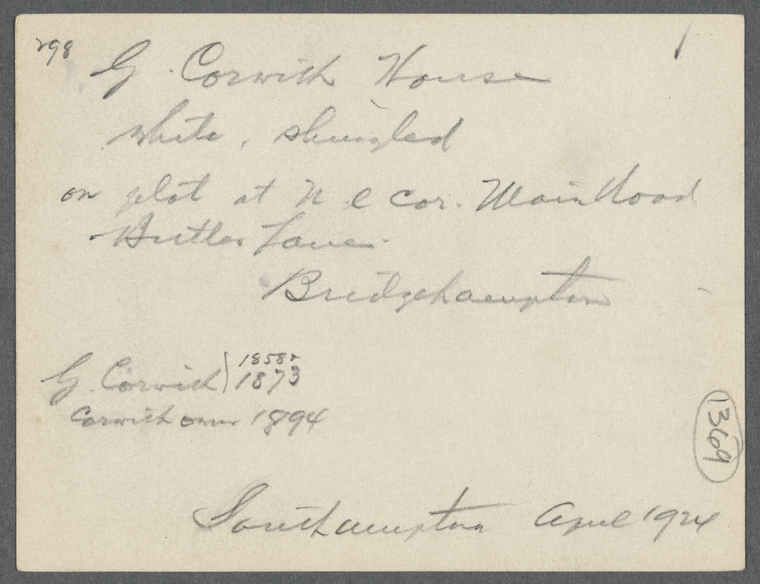 298
G. Corwith House
white, shingled
on plot at N E cor. Main Road
Butler Lane.
Bridgehampton
G. Corwith) 1858 +
1873
Corwith owner 1894
1369
Southampton April 1924